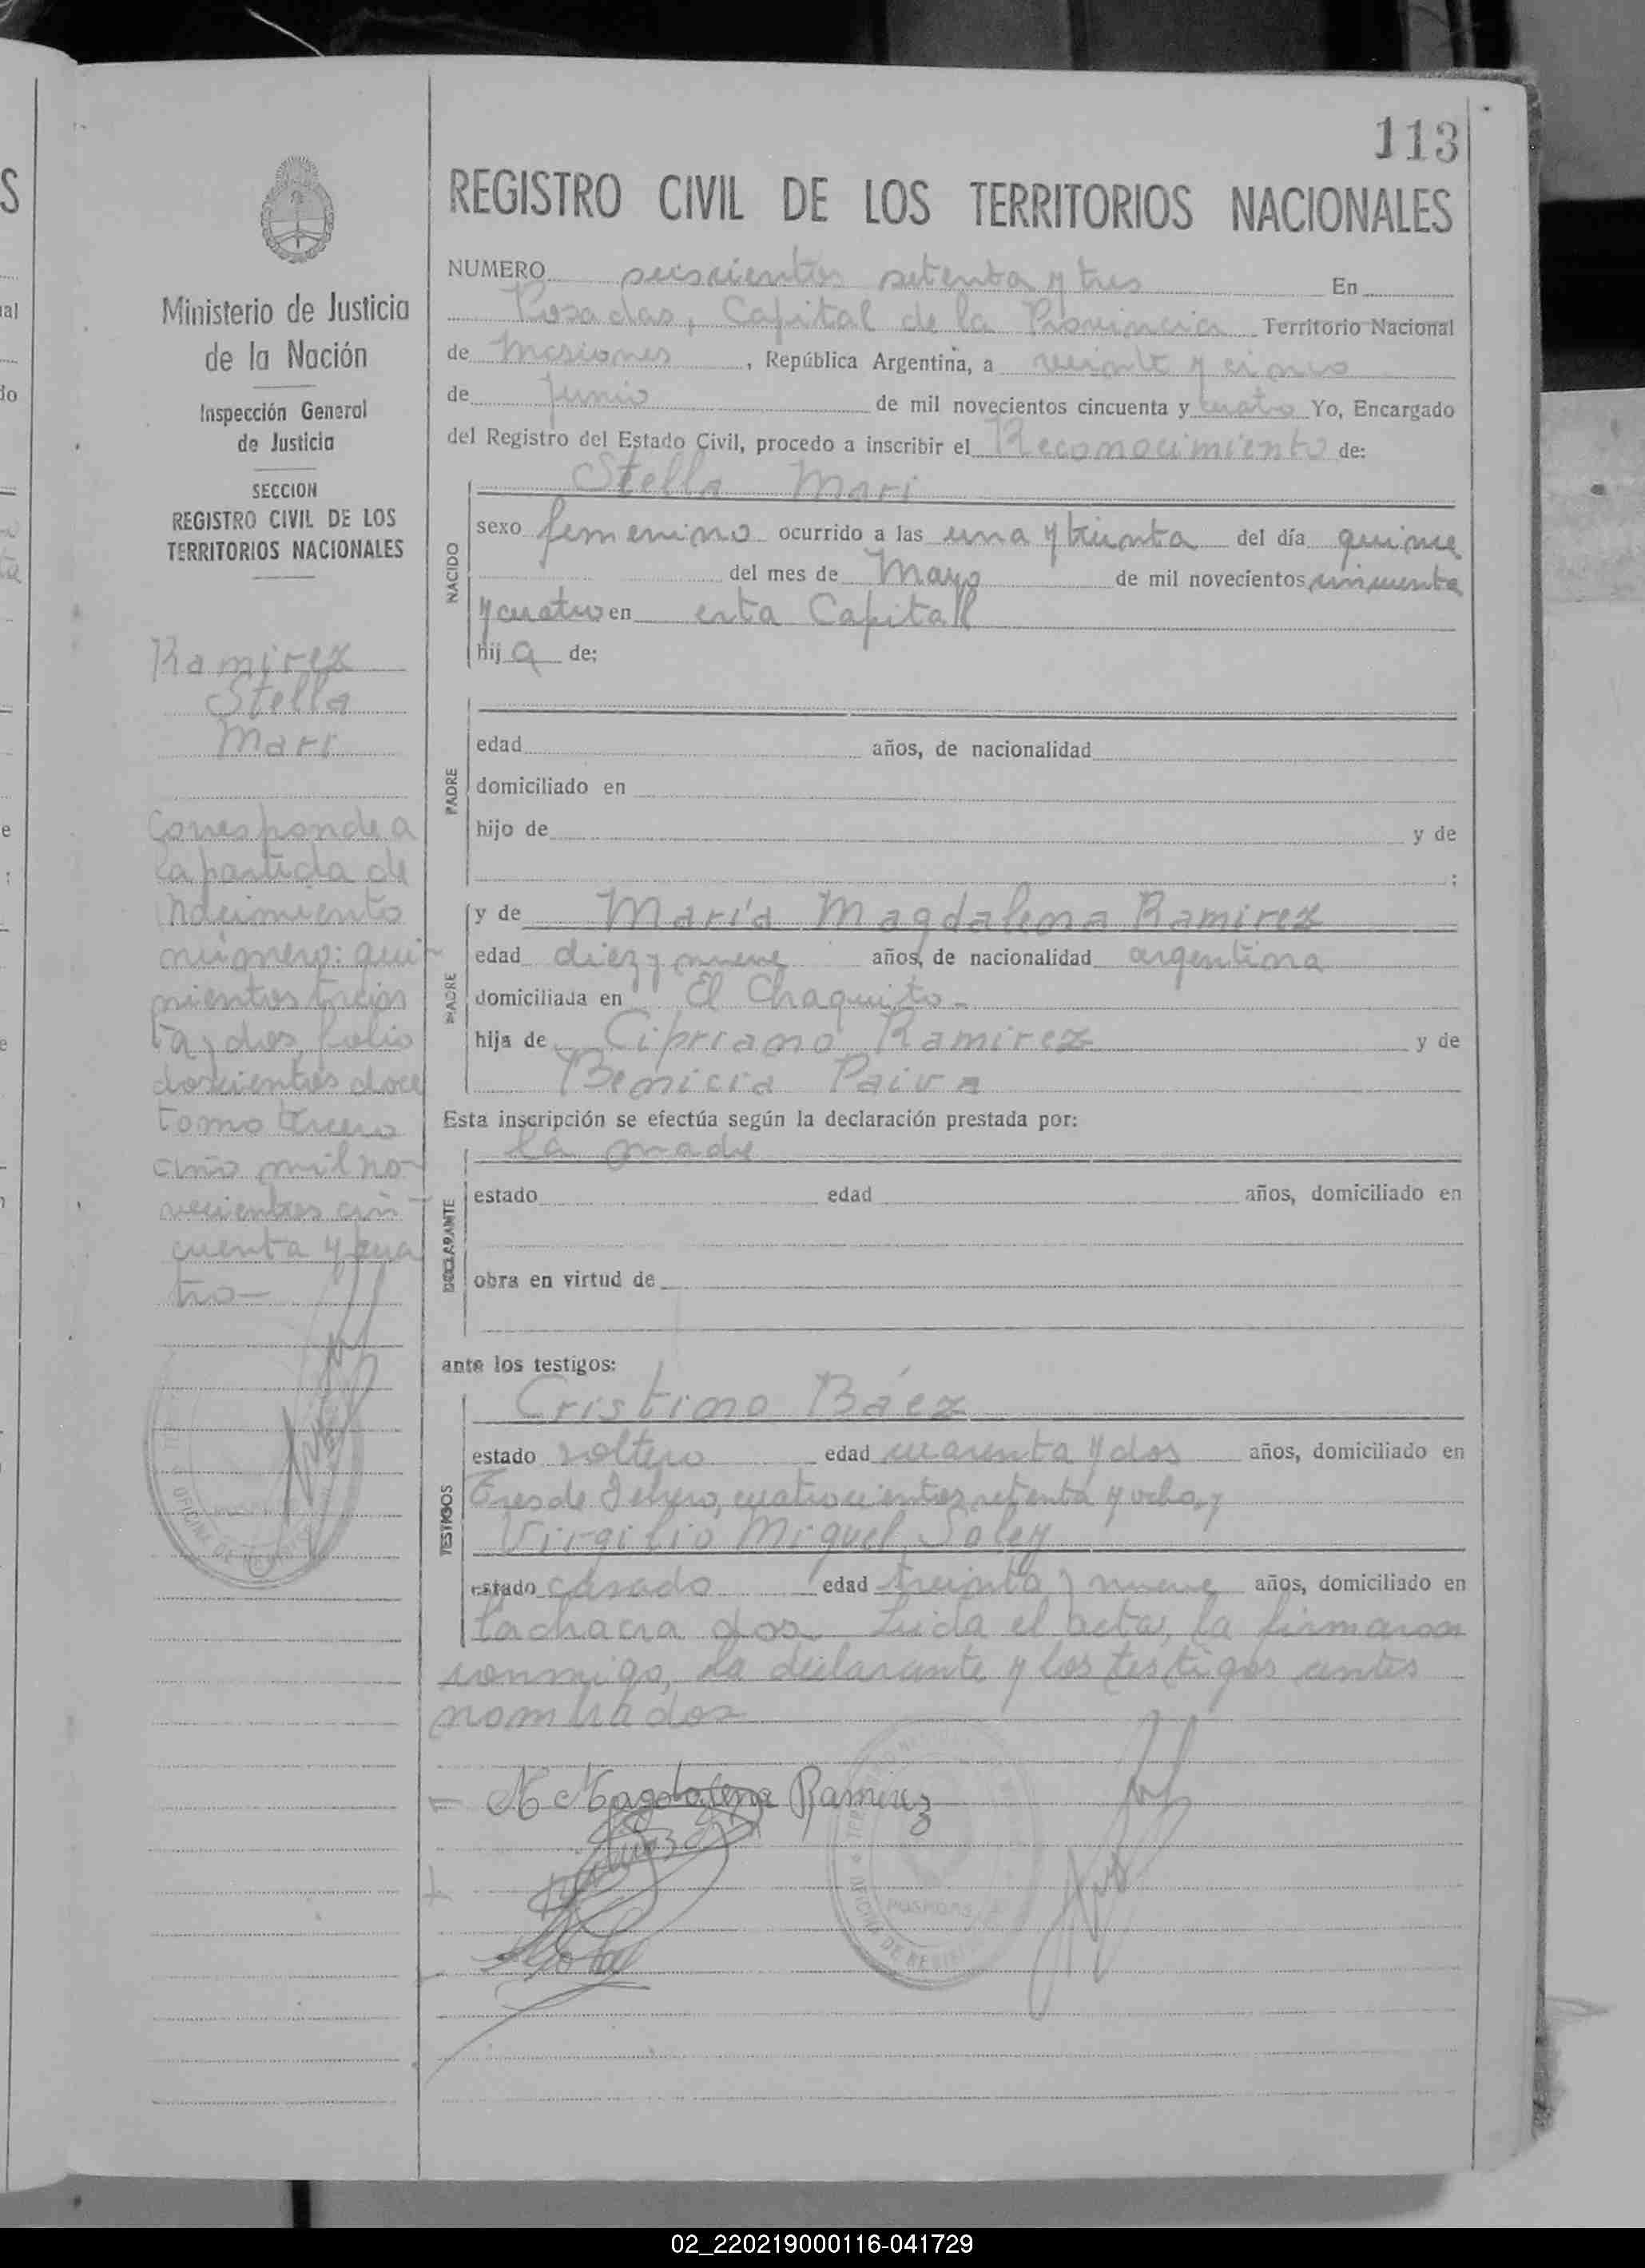 113
REGISTRO CIVIL DE LOS TERRITORIOS NACIONALES
Ministerio de Justicia
de la Nación
Inspección General
de Justicia
SECCION
REGISTRO CIVIL DE LOS
TERRITORIOS NACIONALES
Ramirez
Stella
Mari
Corresponde a
la partida de
nacimiento
número: qui-
nientos trein
ta y dos, folio
doscientos doce
tomo tercero
año mil no-
vecientos cin-
cuenta y cua
tro-
NUMERO seiscientos setenta y tres En
Posadas, Capital de la Provincia Territorio Nacional
de Misiones, República Argentina, a veinte y cinco
de Junio de mil novecientos cincuenta y cuatro Yo, Encargado
del Registro del Estado Civil, procedo a inscribir el Reconocimiento de:
Stella Mari
NACIDO
sexo femenino ocurrido a las una y treinta del día quince
del mes de Mayo de mil novecientos cincuenta
y cuatro en esta Capital
hija de;
PADRE
edad años, de nacionalidad
domiciliado en
hijo de y de
;
MADRE
y de María Magdalena Ramirez
edad diez y nueve años, de nacionalidad argentina
domiciliada en El Chaquito-
hija de Cipriano Ramirez y de
Benicia Paiva
Esta inscripción se efectúa según la declaración prestada por:
la madre
DECLARANTE
estado edad años, domiciliado en
obra en virtud de
ante los testigos:
Cristino Báez
TESTIGOS
estado soltero edad cuarenta y dos años, domiciliado en
Tres de Febrero, cuatrocientos setenta y ocho, y
Virgilio Miguel Soley
estado casado edad treinta y nueve años, domiciliado en
la chacra dos. Leida el acta, la firmaron
conmigo, la declarante y los testigos antes
nombrados
M Magdalena Ramirez
POSADAS
OFICINA DE
02_220219000116-041729